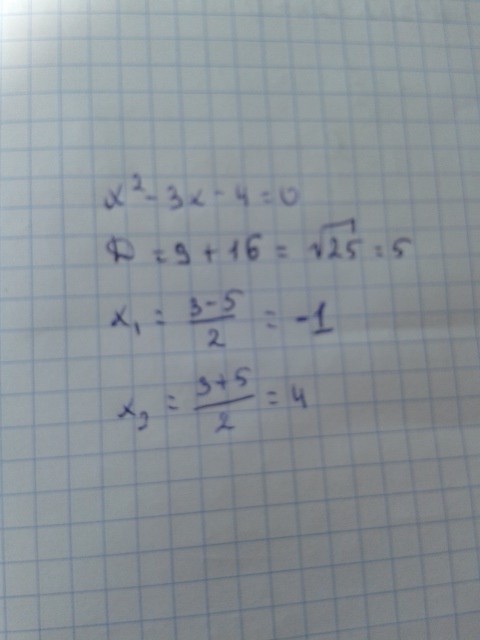 x² - 3x - 4 = 0
D = 9 + 16 = √25 = 5
x₁ = (3-5)/2 = -1
x₂ = (3+5)/2 = 4